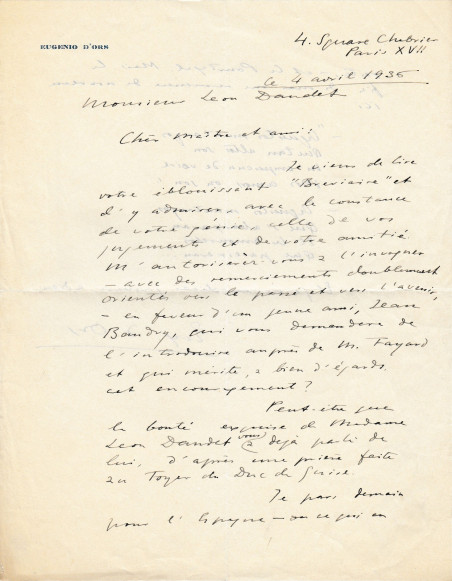 EUGENIO D'ORS
4. Square Chabrier
Paris XVII
ce 4 avril 1936
Monsieur Leon Daudet
Cher maître et ami:
Je viens de lire
votre éblouissant "Breviaire" et
d'y admirer avec la constance
de votre génie celle de vos
jugements et de votre amitié.
M'autoriserez-vous a l'invoquer
- avec des remerciements doublement
orientés vers le passé et vers l'avenir,
- en faveur d'un jeune ami, Jean
Baudry, qui vous demandera de
l'introduire auprès de M. Fayard
et qui mérite, a bien d'égards
cet encouragement?
Peut-être que
la bonté exquise de Madame
Leon Daudet vous a dejà parlé de
lui, d'après une prière faite
au Foyer du Duc de Guise.
Je pars demain
pour l'Espagne - ou ce qui en